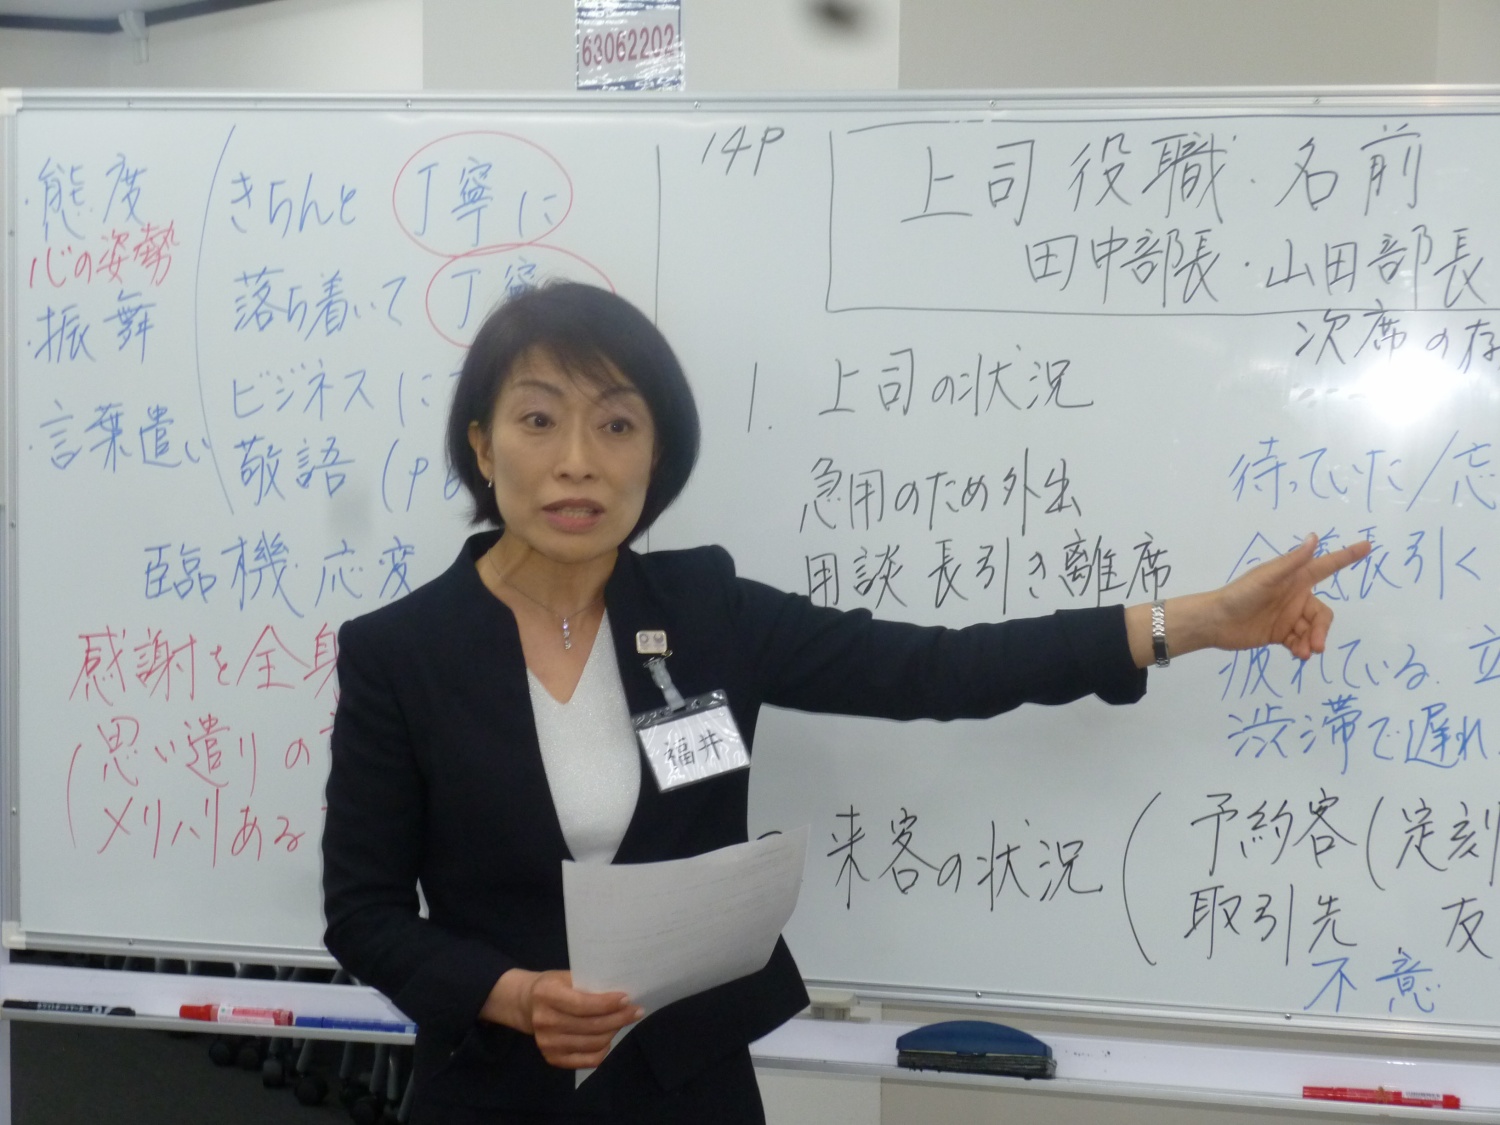 63062202
・態度
心の姿勢
・振舞
・言葉遣い
きちんと 丁寧に
落ち着いて 丁寧
ビジネスに
敬語 (P
臨機応変
感謝を全身
思い遣りの
メリハリある
14P
上司 役職・名前
田中部長・山田部長
次席の存
1. 上司の状況
急用のため外出
用談 長引き離席
待っていた/忘
会議長引く
疲れている 立
渋滞で遅れ
来客の状況
予約客(定刻
取引先 友
不意
福井